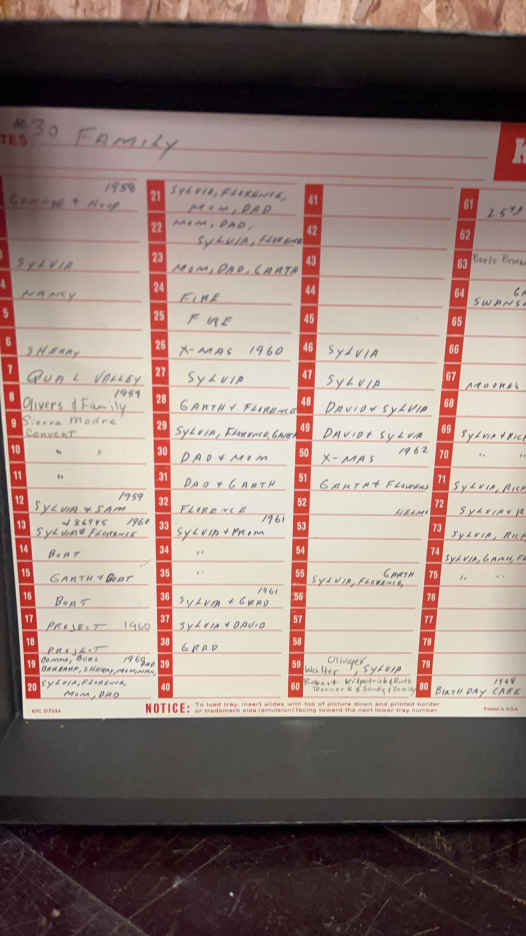 #30 FAMILY
TES
K
1958
3 SYLVIA
4 NANCY
5
6 SHERRY
7 QUAL VALLEY
1959
8 Olivers & Family
9 Sierra Madre
Convent
10 " "
11 "
1959
12 SYLVIA & SAM
1960
13 SYLVIA & FLORENCE
14 BOAT
15 GARTH & BOAT
16 BOAT
17 PROJECT 1960
18 PROJECT
19 DONNA, BURL 1960 DAD
BARBARA, SHERRY, MOM, NAN
20 SYLVIA, FLORENCE,
MOM, DAD
21 SYLVIA, FLORENCE,
MOM, DAD
22 MOM, DAD,
SYLVIA, FLORENCE
23 MOM, DAD, GARTH
24 FIRE
25 FIRE
26 X-MAS 1960
27 SYLVIA
28 GARTH & FLORENCE
29 SYLVIA, FLORENCE, GARTH
30 DAD & MOM
31 DAD & GARTH
32 FLORENCE
1961
33 SYLVIA & PROM
34 "
35 "
1961
36 SYLVIA & GRAD
37 SYLVIA & DAVID
38 GRAD
39
40
41
42
43
44
45
46 SYLVIA
47 SYLVIA
48 DAVID & SYLVIA
49 DAVID & SYLVIA
1962
50 X-MAS
51 GARTH & FLORENCE
52
53
54
55 SYLVIA, FLORENCE, GARTH
56
57
58
59 Oliver
Walter, SYLVIA
60
61 25TH
62
63
64
SWANS
65
66
67
68
69 SYLVIA & RICH
70 " "
71 SYLVIA, RICH
72 SYLVIA & R
73 SYLVIA, RICH
74 SYLVIA, GARTH, FL
75 " "
76
77
78
79
80 BIRTHDAY CAKE
NOTICE: To load tray, insert slides with top of picture down and printed border
or trademark side (emulsion) facing toward the next lower tray number.
Printed in U.S.A.